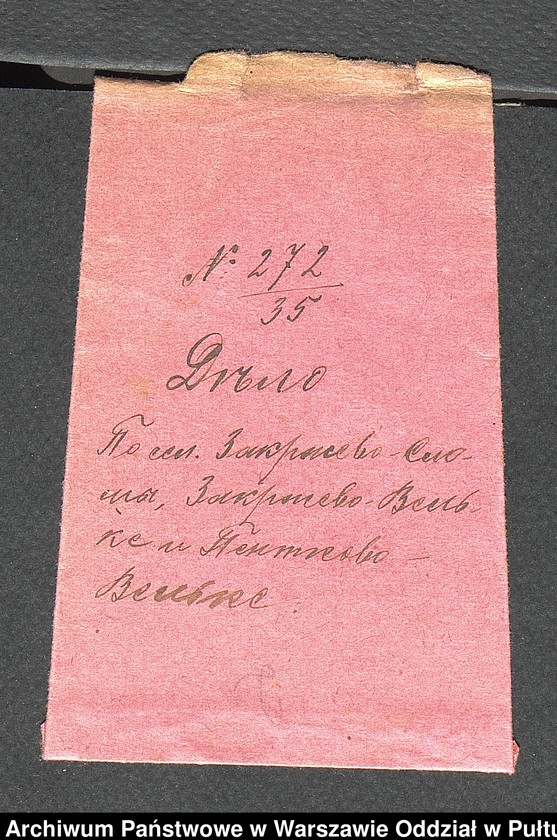 № 272
35
Дѣло
По сел. Закржево-Сло-
мы, Закржево-Вель-
ке и Пентково-
Вельке.
Archiwum Państwowe w Warszawie Oddział w Pułtu